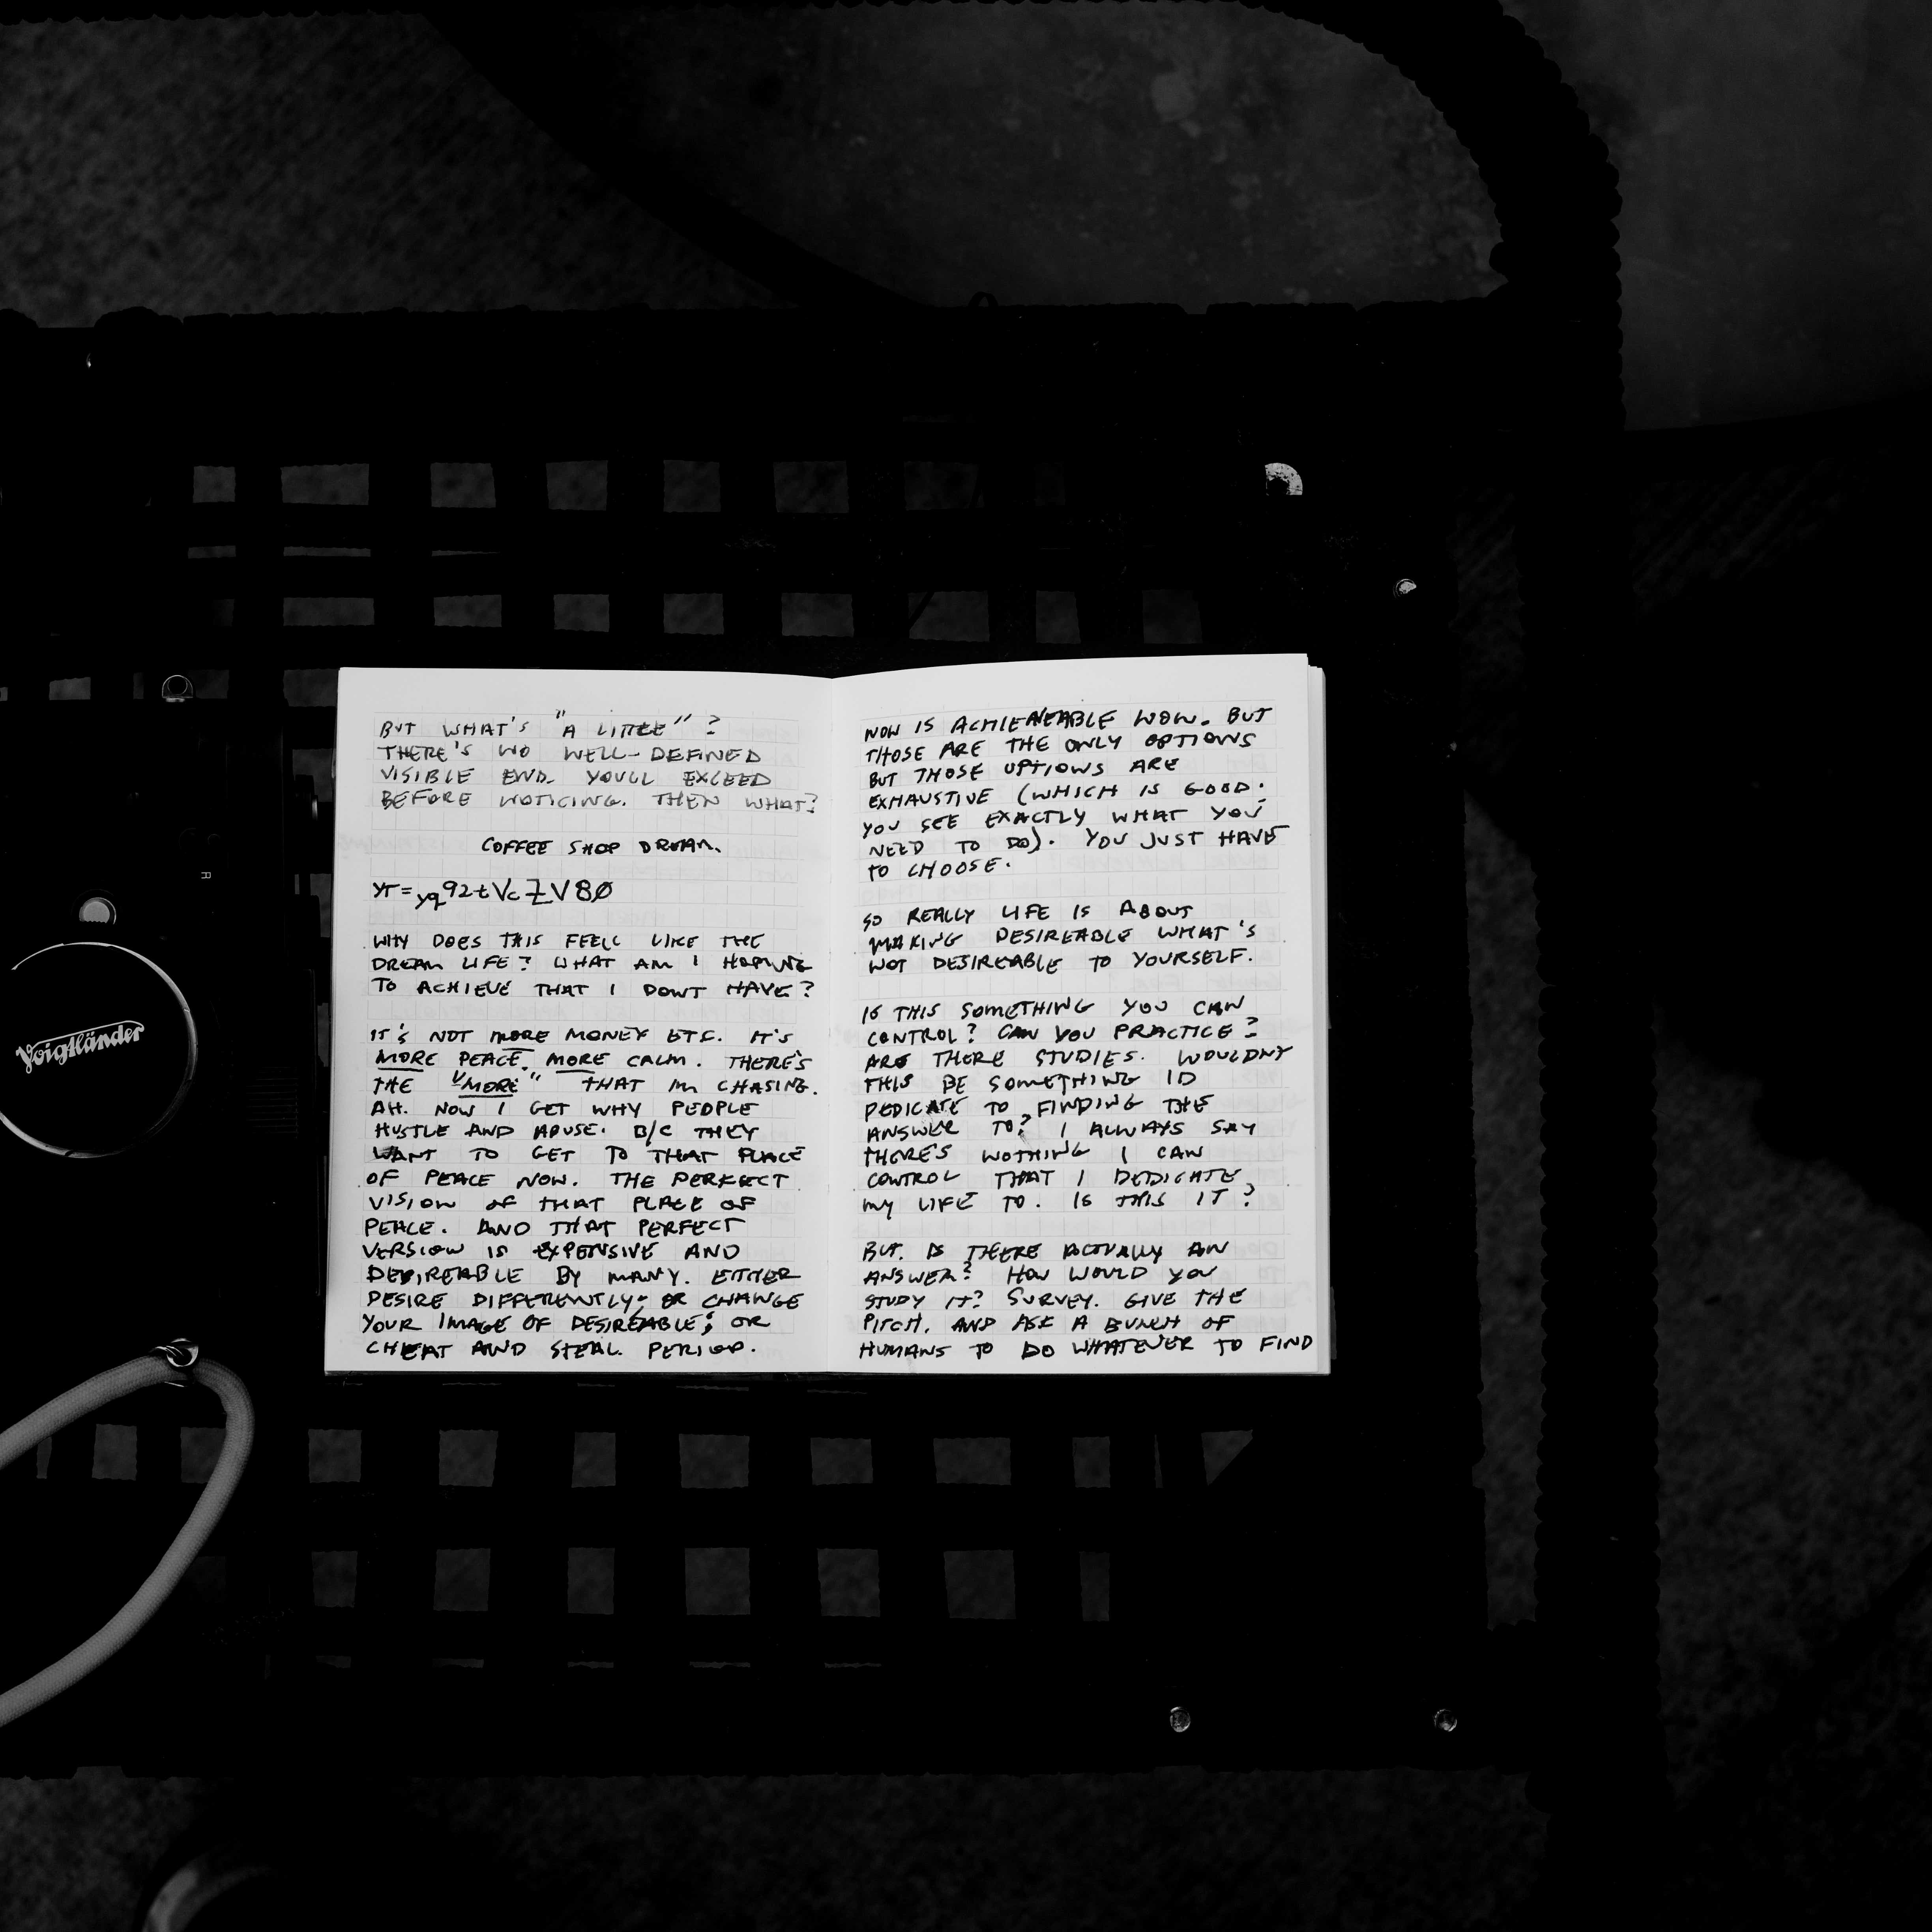 BUT WHAT'S "A LITTLE"?
THERE'S NO WELL-DEFINED
VISIBLE END. YOULL EXCEED
BEFORE NOTICING. THEN WHAT?
COFFEE SHOP DREAM.
YT= yq92tVcZV80
WHY DOES THIS FEEL LIKE THE
DREAM LIFE? WHAT AM I HOPING
TO ACHIEVE THAT I DONT HAVE?
IT'S NOT MORE MONEY ETC. IT'S
MORE PEACE. MORE CALM. THERE'S
THE "MORE" THAT IM CHASING.
AH. NOW I GET WHY PEOPLE
HUSTLE AND ABUSE. B/C THEY
WANT TO GET TO THAT PLACE
OF PEACE NOW. THE PERFECT
VISION OF THAT PLACE OF
PEACE. AND THAT PERFECT
VERSION IS EXPENSIVE AND
DESIREABLE BY MANY. EITHER
DESIRE DIFFERENTLY; OR CHANGE
YOUR IMAGE OF DESIREABLE; OR
CHEAT AND STEAL. PERIOD.
NOW IS ACHIEVEABLE NOW. BUT
THOSE ARE THE ONLY OPTIONS
BUT THOSE OPTIONS ARE
EXHAUSTIVE (WHICH IS GOOD:
YOU SEE EXACTLY WHAT YOU
NEED TO DO). YOU JUST HAVE
TO CHOOSE.
SO REALLY LIFE IS ABOUT
MAKING DESIREABLE WHAT'S
NOT DESIREABLE TO YOURSELF.
IS THIS SOMETHING YOU CAN
CONTROL? CAN YOU PRACTICE?
ARE THERE STUDIES. WOULDNT
THIS BE SOMETHING ID
DEDICATE TO FINDING THE
ANSWER TO? I ALWAYS SAY
THERE'S NOTHING I CAN
CONTROL THAT I DEDICATE
MY LIFE TO. IS THIS IT?
BUT. IS THERE ACTUALLY AN
ANSWER? HOW WOULD YOU
STUDY IT? SURVEY. GIVE THE
PITCH. AND ASK A BUNCH OF
HUMANS TO DO WHATEVER TO FIND
Voigtländer
R